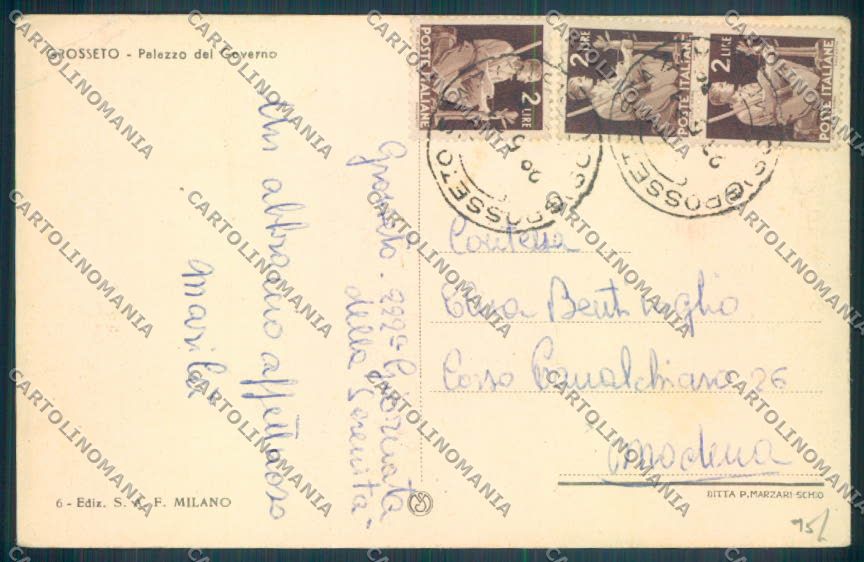 GROSSETO - Palazzo del Governo
2 LIRE
POSTE ITALIANE
2 LIRE
POSTE ITALIANE
2 LIRE
POSTE ITALIANE
GROSSETO
GROSSETO
Grosseto. 299ª Giornata
della Serenità.
Un abbraccio affettuoso
Contessa
Elisa Bentivoglio
Corso Canalchiaro 26
Modena
6 - Ediz. S. A. F. MILANO
DITTA P. MARZARI-SCHIO
95/
CARTOLINOMANIA